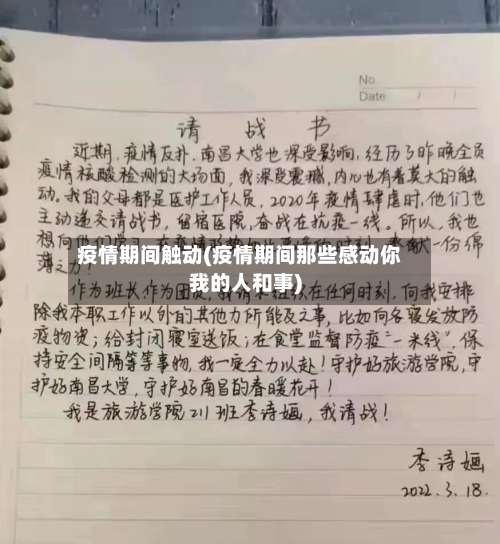 No.
Date
请 战 书
近期,疫情反扑,南昌大学也深受影响,经历了昨晚全员
疫情核酸检测的大场面,我深受震撼,内心也有着莫大的触
动。我的父母都是医护工作人员,2020年疫情肆虐时,他们也
主动递交请战书,留宿医院,奋战在抗疫一线。所以,我也
想向他们
献一份绵
疫情期间触动(疫情期间那些感动你
薄之力!
我的人和事)
作为班长作为团
在任何时刻,向我安排
除我本职工作以外的其他力所能及之事,比如向各寝发放防
疫物资;给封闭寝室送饭;在食堂监督防疫“一米线”,保
持安全间隔等等事物,我一定全力以赴!守护好旅游学院,守
护好南昌大学,守护好南昌的春暖花开!
我是旅游学院211班李诗婳,我请战!
李诗婳
2022.3.18.